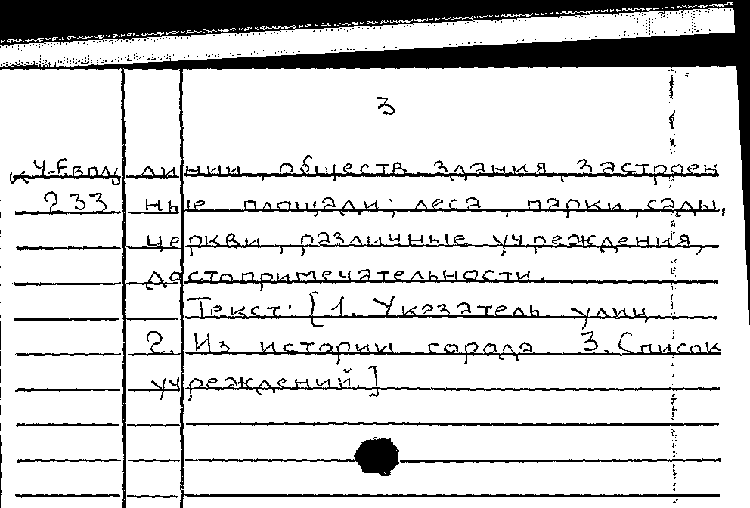 3
К Ч-Европ линии, обществ. здания, застроен
233 ные площади; леса, парки, сады,
церкви, различные учреждения,
достопримечательности.
Текст: [1. Указатель улиц
2. Из истории города 3. Список
учреждений.]